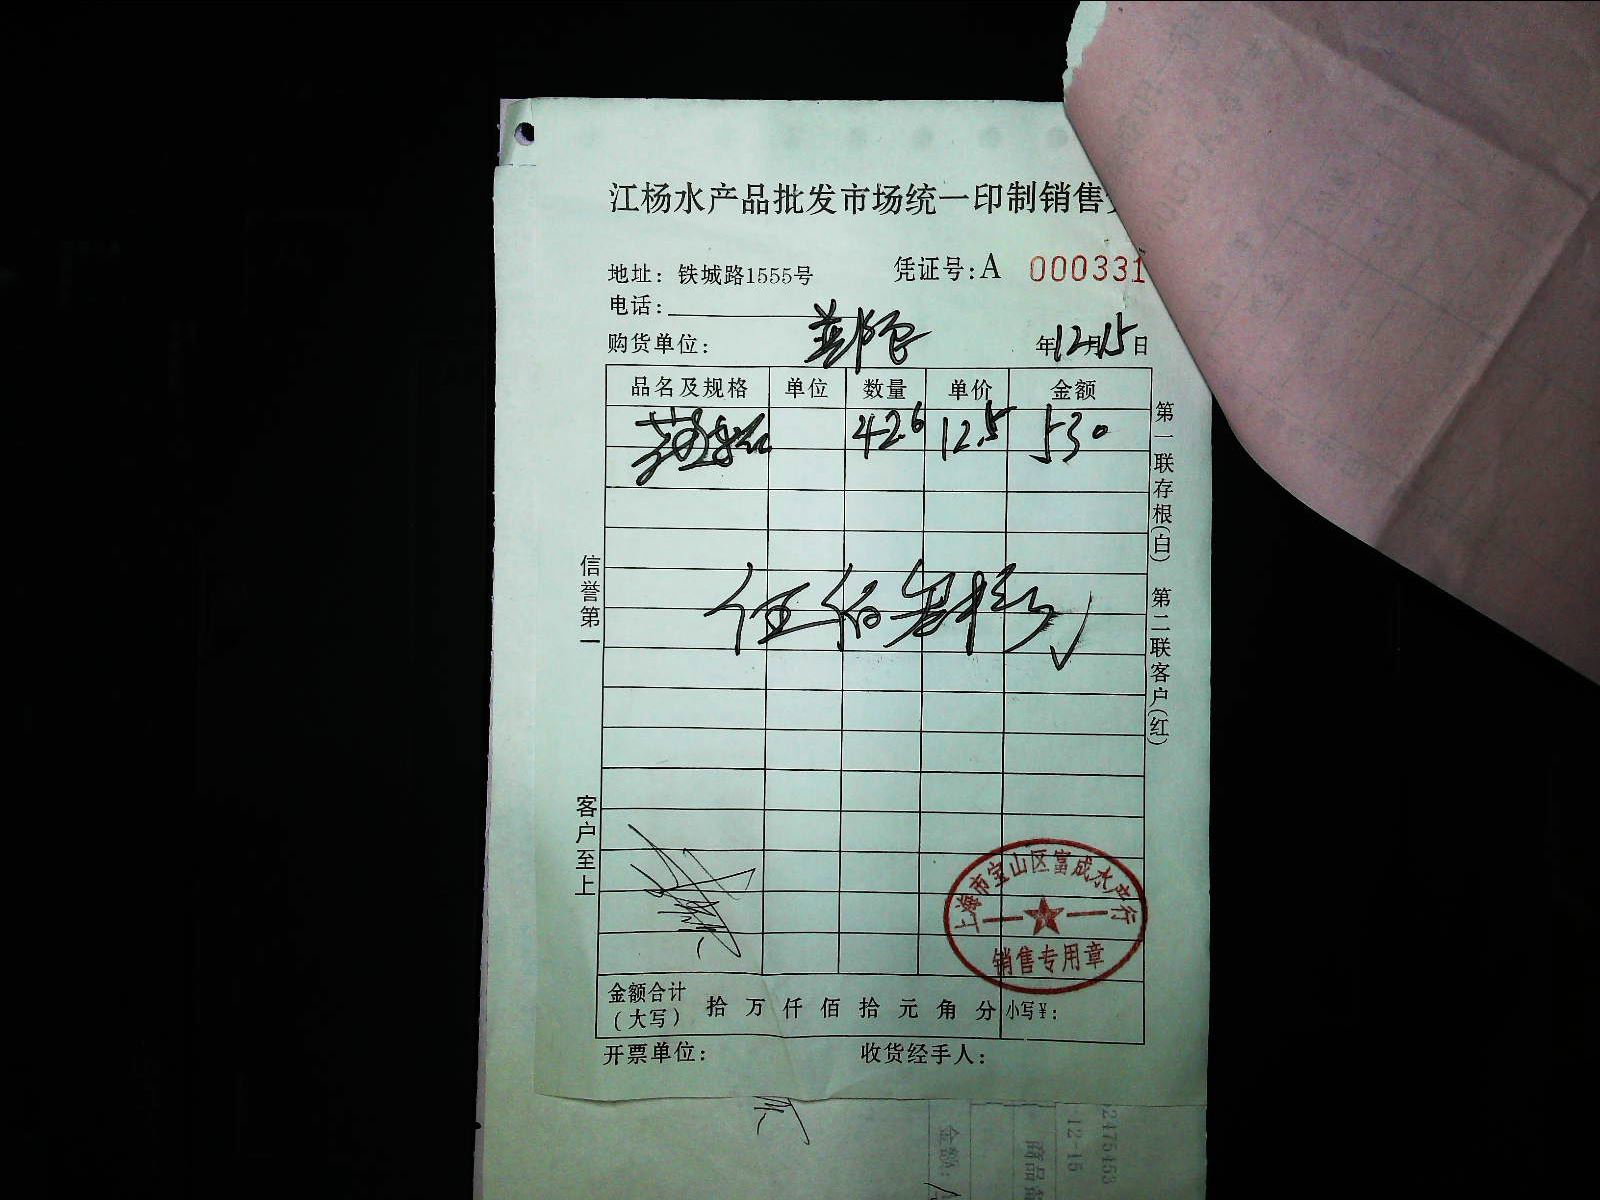 江杨水产品批发市场统一印制销售
地址：铁城路1555号
凭证号：A 000331
电话：
购货单位：
年12月15日
品名及规格 单位 数量 单价 金额
42.6 12.5 530
伍佰叁拾元
第一联存根(白) 第二联客户(红)
信誉第一
客户至上
上海市宝山区富成水产行
销售专用章
金额合计（大写） 拾 万 仟 佰 拾 元 角 分 小写¥：
开票单位： 收货经手人：
金额：
商品
12-15
2475453